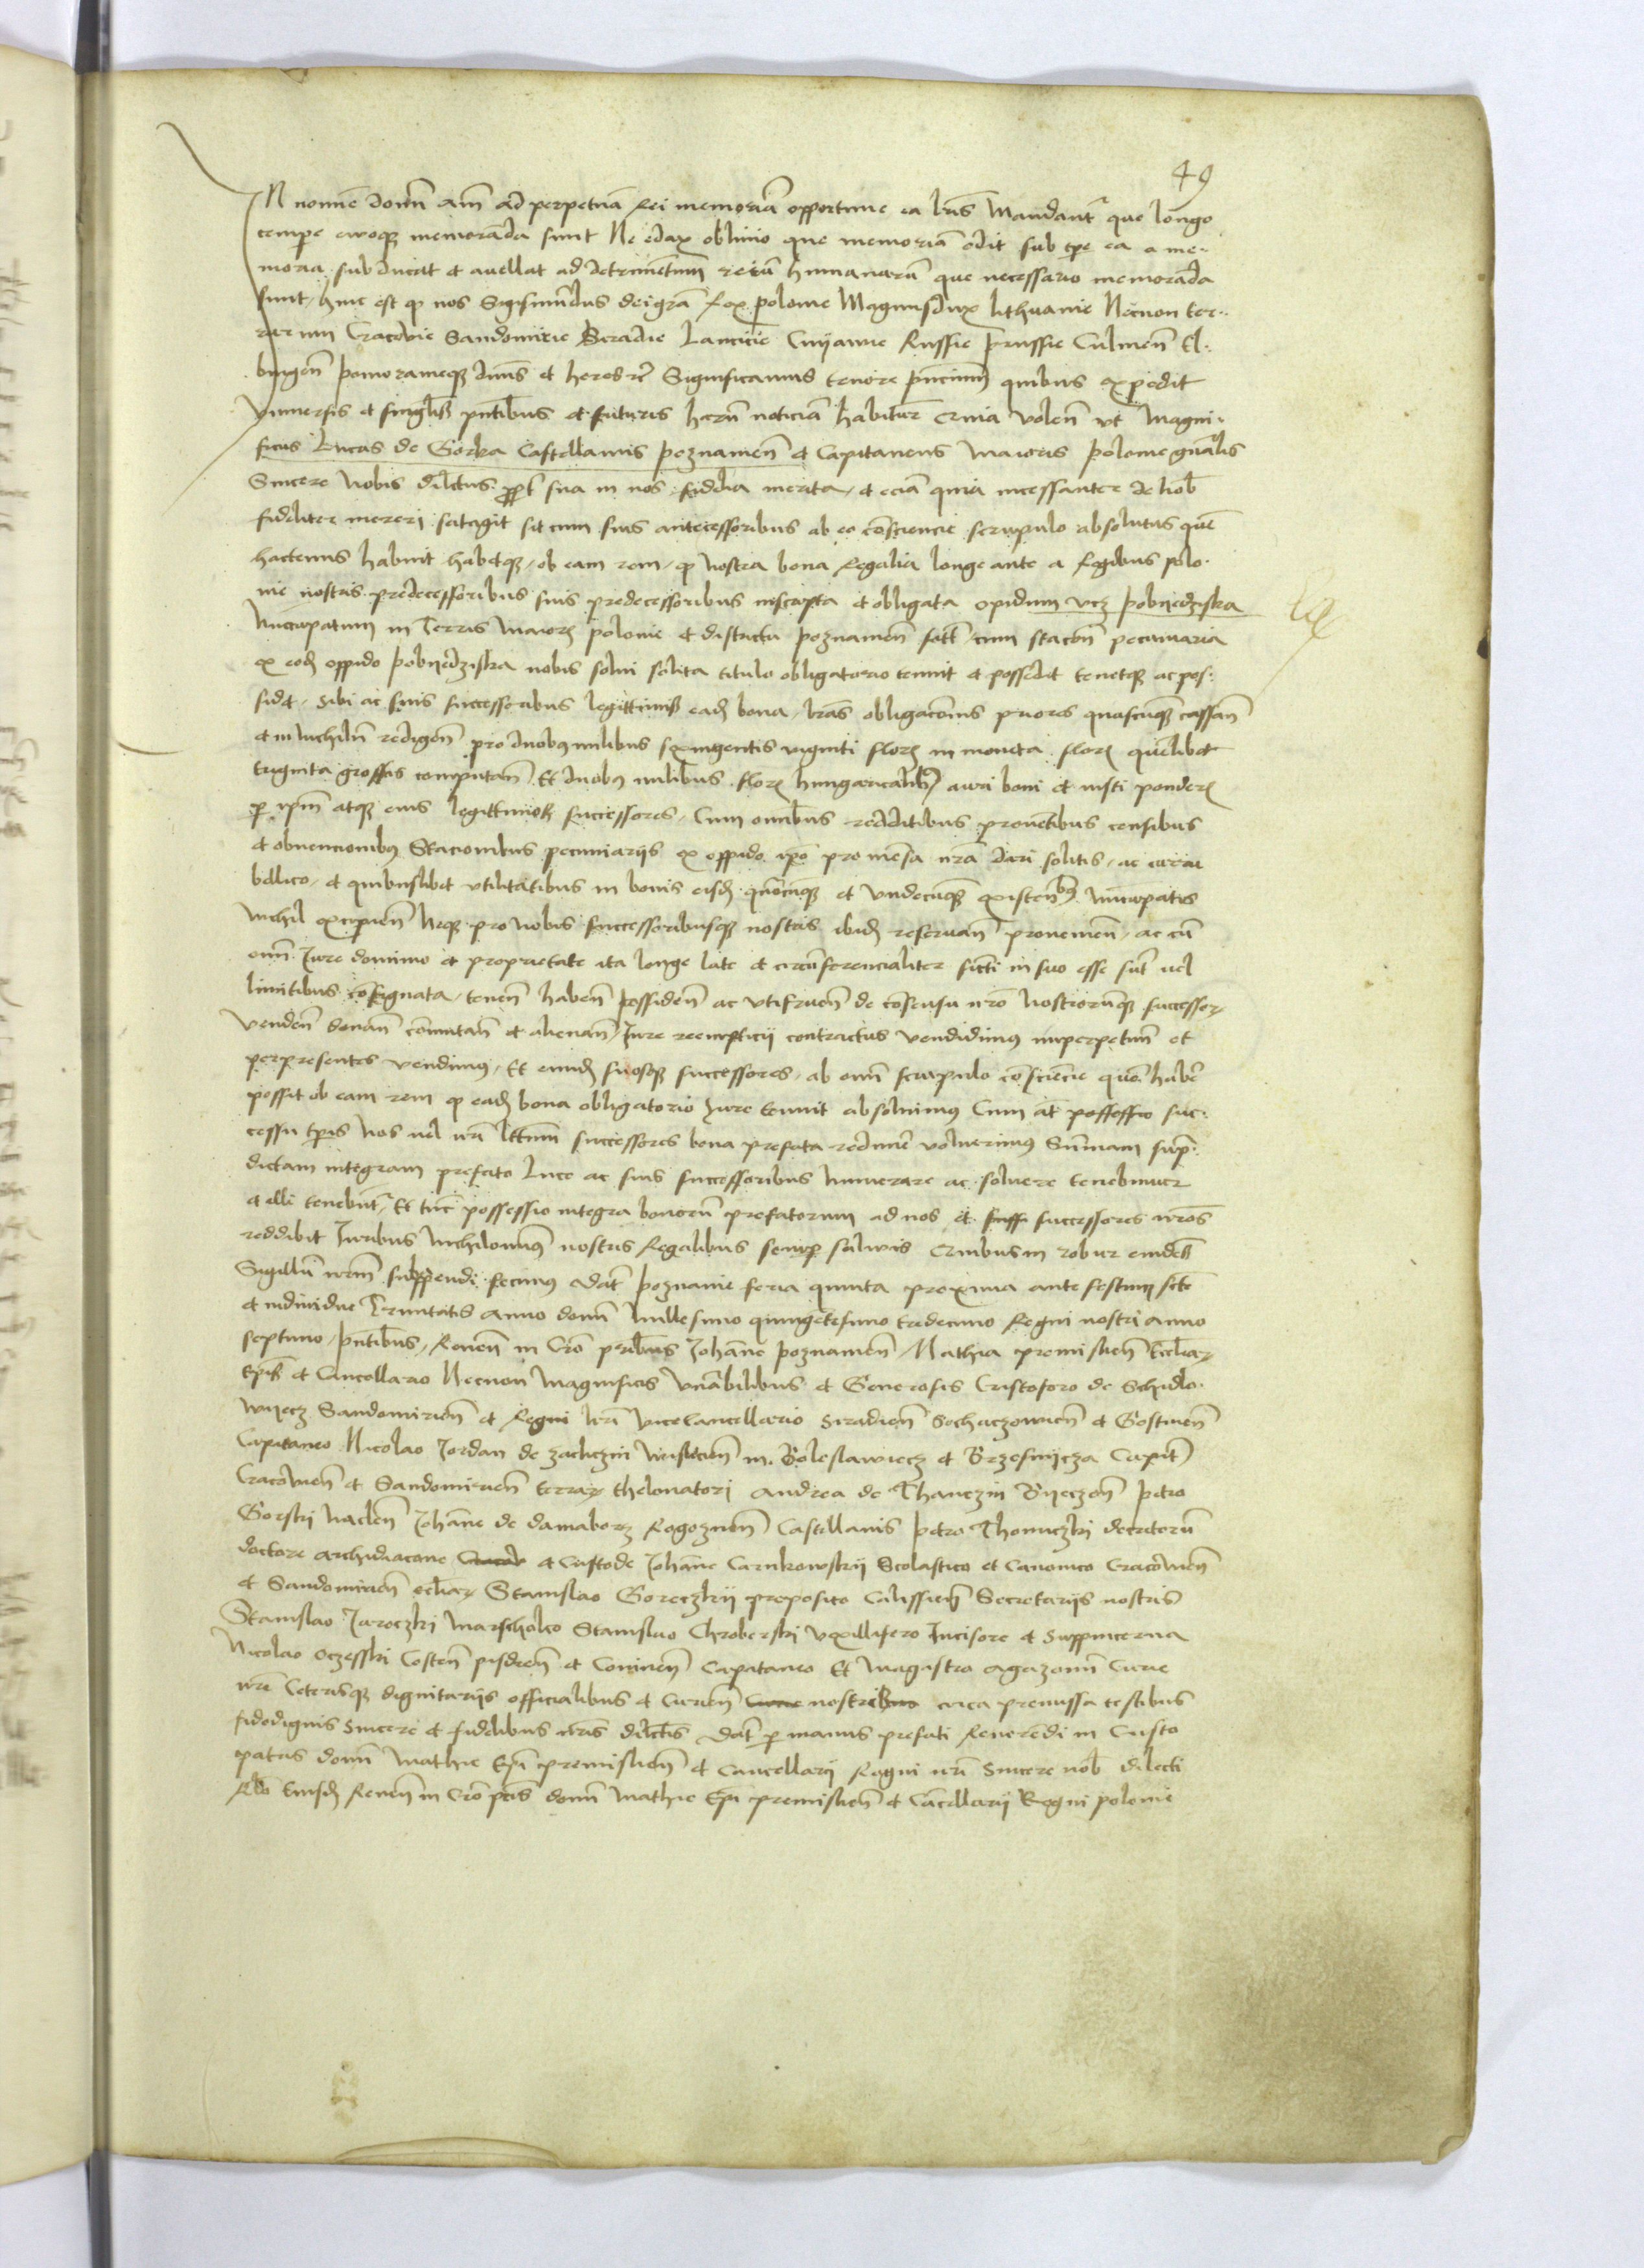 49
In nomine domini am̄ Ad perpetuā Rei memoriā opportune ea lr̄is Mandant᷑ que longo
tempe evoqꝫ memoranda sunt Ne edax oblivio que memoriā odit sub tpe ea a me-
moria subducat et avellat ad detrimentum rerū humanarū que necessario memorāda
sunt, hinc est qꝫ nos Sigismūdus dei grā Rex polonie Magnusdux lithuanie Necnon ter-
rarum Cracovie Sandomirie Siradie Lancicie Cuyavie Russie prussie Culmen̄ El-
bingen̄ pomoranieqꝫ dn̄us et heres rc̄ Significamus tenore pn̄cium quibus expedit
Universis et singl̄is pn̄tibus et futuris harū noticiā habitur̄ Quia volen̄ ut Magni-
ficus Lucas de Gorka Castellanus poznanien̄ et Capitaneus Maioris polonie gn̄alis
Sincere Nobis dilc̄tus propt̄ sua in nos fidelia merita, et eciā quia incessanter de nob̄
fideliter mereri satagit sit cum suis antecessoribus ab eo cōsciencie scrupulo absolutus quē
hactenus habuit habetqꝫ, ob eam rem, qꝫ Nostra bona Regalia longe ante a Regibus polo-
nie nostris predecessoribus suis predecessoribus inscripta et obligata opidum vcꝫ pobyedziska
Nūcupatum in Terris Maioꝝ polonie et districtu poznanien̄ sitū cum stacōn̄ pecuniaria
ex eodē oppido pobyedziska nobis solvi solita titulo obligatorio tenuit et possedit tenetqꝫ ac pos-
sidet, Sibi ac suis successoribus legittimis eadē bona, lr̄as obligacōnis priores quascūqꝫ cassan̄
et in Nichilū redigen̄ pro duobꝫ milibus sexingentis viginti floꝝ in moneta floꝝ quēlibet
triginta grossos computan̄ Et duobꝫ milibus floꝝ hungaricalibꝫ auri boni et iusti ponderꝫ
p ipm̄ atqꝫ eius legittimos successores, Cum omībus redditibus proventibus censibus
et obvencionibꝫ Stacionibus pecuniariis ex oppido ipo pro mensa nr̄a dari solitis, ac curru
bellico, et quibuslibet utilitatibus in bonis eisdē quōcūqꝫ et Undecūqꝫ existen̄bꝫ Nūcupatis
Nichil excipien̄ Neqꝫ pro Nobis successoribusqꝫ nostris ibidē reservan̄ provenien̄, ac cū
omī Jure dominio et proprietate ita longe late et circūferencialiter sicuti in suo esse sūt vel
limitibus cōsignata, tenen̄ haben̄ possiden̄ ac utifruen̄ de cōsensu nr̄o Nostrorūqꝫ successoꝝ
venden̄ donan̄ cōmutan̄ et alienan̄, Jure reempticii contractus vendidimus imperpetuū et
perpresentes vendimus, Et eundē suosqꝫ successores, ab omī scrupulo cōsciencie quē habē
possit ob eam rem qꝫ eadē bona obligatorio Jure tenuit absolvimus Cum at̄ possessio suc-
cessu tp̄is Nos vel nr̄i lt̄timi successores bona prefata redimē voluerimus Sūmam supra-
dictam integram prefato Luce ac suis successoribus Numerare ac solvere tenebimur
et illi tenebūt᷑, Et tūc possessio integra bonorū prefatorum ad nos et suff successores nr̄os
reddibit Juribus Nichilominꝫ nostris Regalibus semp salvis Quibus in robur evidens
Sigillū nr̄m subppendi fecimus Dat̄ poznanie feria quinta proxima ante festum scte
et individue Trinitatis Anno domī Millesimo quingētesimo tredecimo Regni nostri anno
septimo, pn̄tibus, Reven̄ in Cr̄o prībus Johāne poznanien̄, Mathia premislien̄ Eccliaꝝ
Ep̄is et Cancellario Necnon Magnificis Ven̄abilibus et Generosis Cristoforo de Schidlo-
wyecz Sandomirien̄ et Regni Nr̄i Vicecancellario siradien̄ Sochaczowien̄ et Gostinen̄
Capitaneo Nicolao Jordan de zacliczin Wislicien̄ in Boleslawiecz et Brzesznycza Capit̄
Cracovien̄ et Sandomirien̄ terraꝝ thelonatori Andrea de Thanczin Byeczen̄ petro
Gorski Naclen̄ Johāne de damaborꝫ Rogoznen̄ Castellanis petro Thomiczki decretorū
doctore archidiacono Cracov et Custode Johāne Carnkowsky Scolastico et Canonico Cracovien̄
et Sandomirien̄ ecliaꝝ Stanislao Goreczky preposito Calissien̄ Secretariis nostris
Stanislao Jaroczki Marschalco Stanislao Chroberski Vexillifero Incisore et Suppincerna
Nicolao Oczesski Costen̄ pisdren̄ et Coninen̄ Capitaneo Et Magistro agazonū Curie
nr̄e Ceterisqꝫ dignitariis officialibus et Curien̄ Curie nostribus circa premissa testibus
fidedignis sincere et fidelibus nr̄is dilc̄tis Dat̄ p manus prefati Reverendi in Cristo
patris domī Mathie Ep̄i premislien̄ et Cancellarii Regni nr̄i Sincere nob̄ dilecti
Rl̄o Eiusdē Reven̄ in Cr̄o pr̄is domī Mathie Ep̄i premislien̄ et Cācellarii Regni polonie